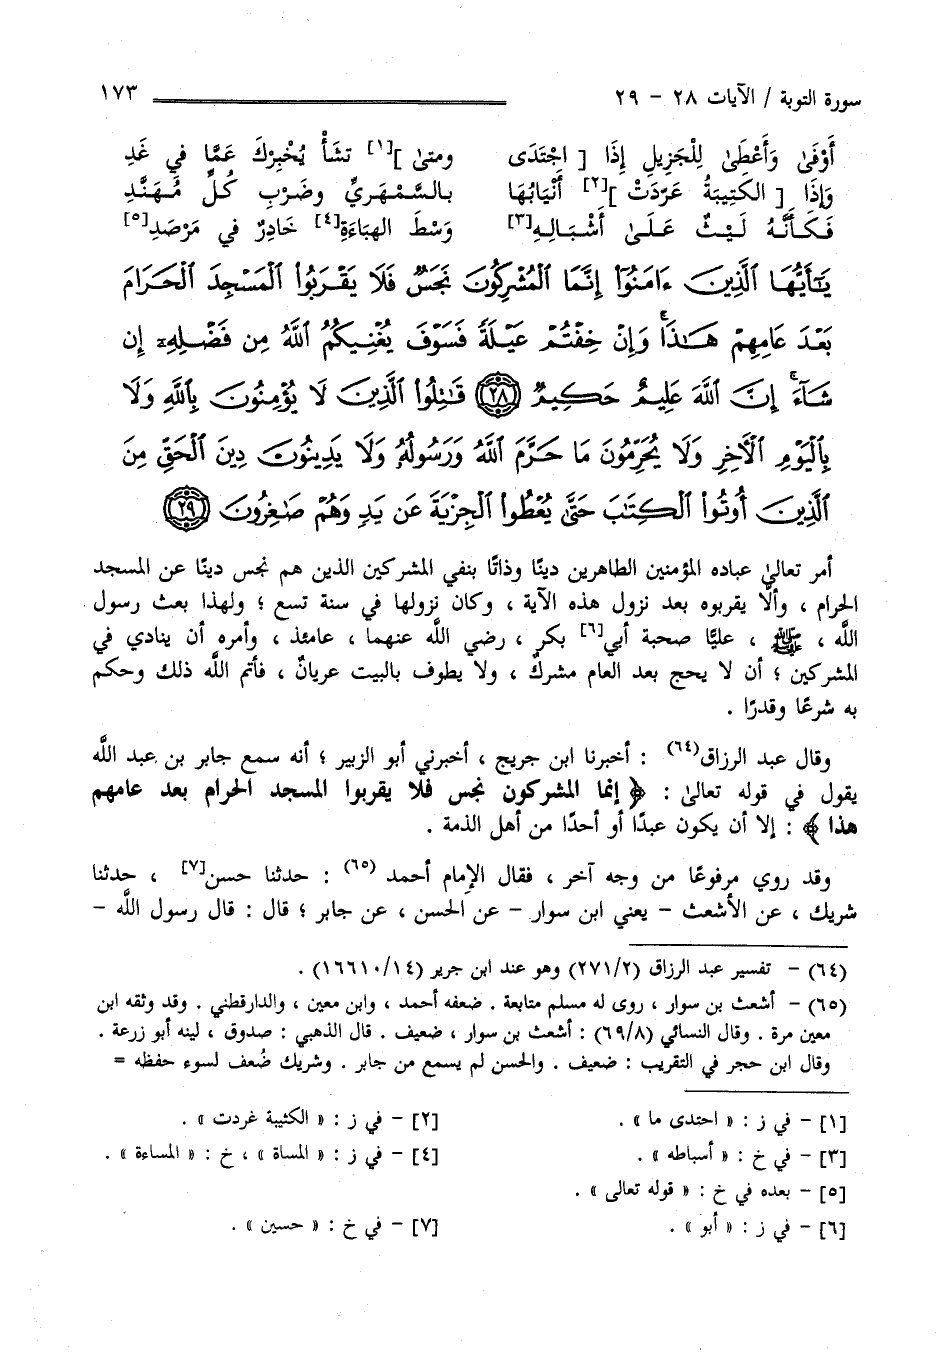 سورة التوبة / الآيات ٢٨ - ٢٩ ١٧٣
أَوْفَىٰ وَأَعْطَىٰ لِلْجَزِيلِ إِذَا [ اجْتَدَى ومتىٰ ][١] تشَأْ يُخْبِرْكَ عَمَّا في غَدِ
وَإِذَا [ الكَتِيبَةُ عَرّدَتْ ][٢] أَنْيَابُهَا بالسَّمْهَرِيِّ وضَرْبِ كُلِّ مُهَنَّدِ
فَكَأَنَّهُ لَيْثٌ عَلَىٰ أَشْبَالِهِ[٣] وَسْطَ الهبَاءَةِ[٤] خَادِرٌ في مَرْصَدِ[٥]
يَٰٓأَيُّهَا ٱلَّذِينَ ءَامَنُوٓا۟ إِنَّمَا ٱلْمُشْرِكُونَ نَجَسٌ فَلَا يَقْرَبُوا۟ ٱلْمَسْجِدَ ٱلْحَرَامَ
بَعْدَ عَامِهِمْ هَٰذَا ۚ وَإِنْ خِفْتُمْ عَيْلَةً فَسَوْفَ يُغْنِيكُمُ ٱللَّهُ مِن فَضْلِهِۦٓ إِن
شَآءَ ۚ إِنَّ ٱللَّهَ عَلِيمٌ حَكِيمٌ ٢٨ قَٰتِلُوا۟ ٱلَّذِينَ لَا يُؤْمِنُونَ بِٱللَّهِ وَلَا
بِٱلْيَوْمِ ٱلْءَاخِرِ وَلَا يُحَرِّمُونَ مَا حَرَّمَ ٱللَّهُ وَرَسُولُهُۥ وَلَا يَدِينُونَ دِينَ ٱلْحَقِّ مِنَ
ٱلَّذِينَ أُوتُوا۟ ٱلْكِتَٰبَ حَتَّىٰ يُعْطُوا۟ ٱلْجِزْيَةَ عَن يَدٍ وَهُمْ صَٰغِرُونَ ٢٩
أمر تعالىٰ عباده المؤمنين الطاهرين دينًا وذاتًا بنفي المشركين الذين هم نجس دينًا عن المسجد
الحرام ، وألَّا يقربوه بعد نزول هذه الآية ، وكان نزولها في سنة تسع ؛ ولهذا بعث رسول
اللَّه ، ﷺ ، عليًّا صحبة أبي[٦] بكر ، رضي اللَّه عنهما ، عامئذ ، وأمره أن ينادي في
المشركين ؛ أن لا يحج بعد العام مشركٌ ، ولا يطوف بالبيت عريانٌ ، فأتم اللَّه ذلك وحكم
به شرعًا وقدرًا .
وقال عبد الرزاق(٦٤) : أخبرنا ابن جريج ، أخبرني أبو الزبير ؛ أنه سمع جابر بن عبد اللَّه
يقول في قوله تعالىٰ : ﴿ إنما المشركون نجس فلا يقربوا المسجد الحرام بعد عامهم
هذا ﴾ : إلا أن يكون عبدًا أو أحدًا من أهل الذمة .
وقد روي مرفوعًا من وجه آخر ، فقال الإمام أحمد (٦٥) : حدثنا حسن[٧] ، حدثنا
شريك ، عن الأشعث - يعني ابن سوار - عن الحسن ، عن جابر ؛ قال : قال رسول اللَّه -
(٦٤) - تفسير عبد الرزاق (٢٧١/٢) وهو عند ابن جرير (١٦٦١٠/١٤) .
(٦٥) - أشعث بن سوار ، روى له مسلم متابعة . ضعفه أحمد ، وابن معين ، والدارقطني . وقد وثقه ابن
معين مرة . وقال النسائي (٦٩/٨) : أشعث بن سوار ، ضعيف . قال الذهبي : صدوق ، لينه أبو زرعة .
وقال ابن حجر في التقريب : ضعيف . والحسن لم يسمع من جابر . وشريك ضُعف لسوء حفظه =
[١] - في ز : « احتدى ما » . [٢] - في ز : « الكثيبة غردت » .
[٣] - في خ : « أسباطه » . [٤] - في ز : « المساة » ، خ : « المساءة » .
[٥] - بعده في خ : « قوله تعالى » .
[٦] - في ز : « أبو » . [٧] - في خ : « حسين » .